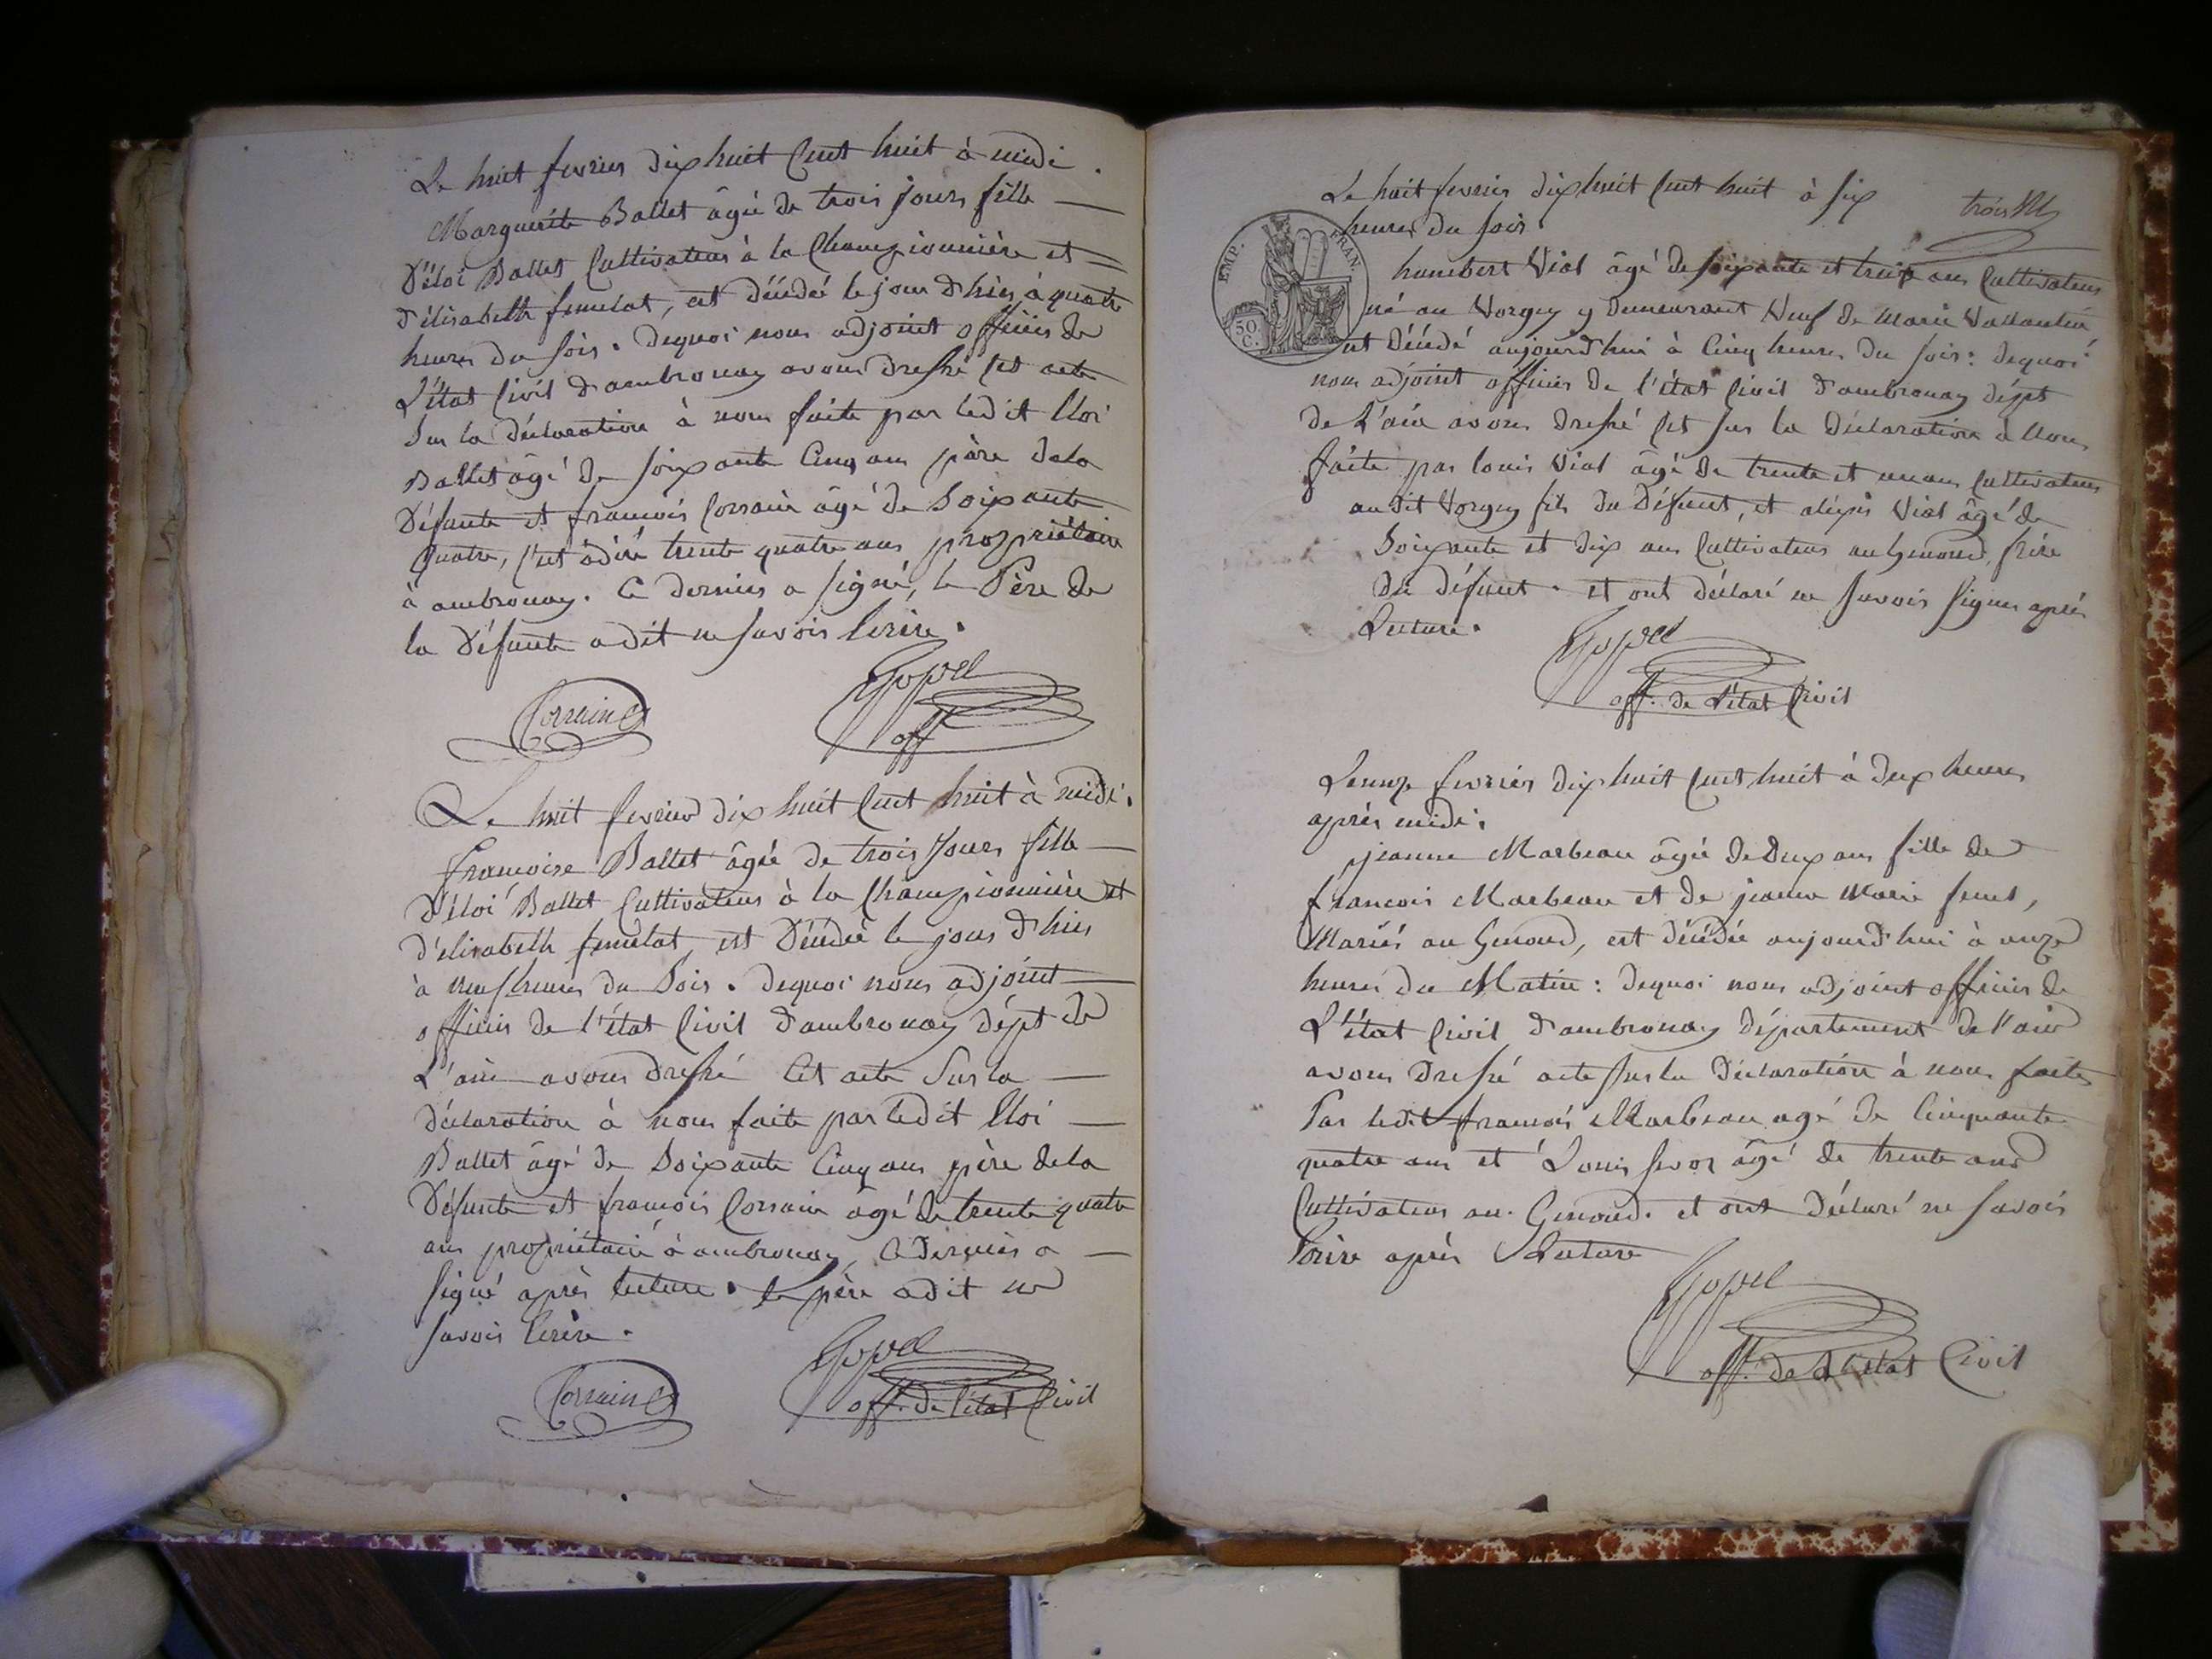 Le huit fevrier dix huit cent huit à midi.
Marguerite Ballet âgée de trois jours fille
d'Éloi Ballet Cultivateur à la Championnière et
d'élisabeth femelat, est décédée le jour d'hier à quatre
heures du soir. dequoi nous adjoint officier de
L'état Civil d'ambronay avons dressé cet acte
Sur la déclaration à nous faite par ledit Eloi
Ballet âgé de soixante cinq ans père dela
défunte et francois Corrain âgé de Soixante
quatre, c'est àdire trente quatre ans propriétaire
à ambronay. Ce dernier a signé, le Père de
la défunte a dit ne savoir écrire.
Corrain
off
Le huit fevrier dix huit cent huit à midi.
francoise Ballet âgée de trois Jours fille
d'éloi Ballet Cultivateur à la Championnière et
d'élisabeth femelat, est Décédée le jour d'hier
à neuf heures du Soir. dequoi nous adjoint
officier de l'état Civil d'ambronay dépt de
L'ain avons dressé Cet acte Sur la
déclaration à nous faite par ledit Eloi
Ballet âgé de Soixante Cinq ans père dela
Défunte et francois Corrain âgé de trente quatre
ans propriétaire à ambronay, Ce dernier a
signé après lecture. le père a dit ne
savoir écrire.
Corrain
off. de l'état Civil
Le huit fevrier dix huit cent huit à six
heures du soir.
EMP. FRAN.
50. C.
humbert Vial âgé de soixante et treize ans Cultivateur
né au Vorgey y demeurant Veuf de Marie
est Décédé aujourd'hui à Cinq heures du soir: dequoi
nous adjoint officier de l'état Civil d'ambronay dépt
de L'ain avons dressé cet sur la déclaration à Nous
faite par louis Vial âgé de trente et un ans Cultivateur
au dit Vorgey fils du Défunt, et alexis Vial âgé de
Soixante et dix ans Cultivateur au Genoud, frère
du défunt. et ont déclaré ne savoir signer après
Lecture.
off. de L'état Civil
Le onze fevrier dix huit cent huit à deux heures
après midi.
jeanne Marbeau âgée de deux ans fille de
francois Marbeau et de jeanne Marie
Mariés au Genoud, est décédée aujourd'hui à onze
heures du Matin: dequoi nous adjoint officier de
L'état Civil d'ambronay département de l'ain
avons dressé acte sur la déclaration à nous faite
Par ledit francois Marbeau agé de Cinquante
quatre ans et Louis âgé de trente ans
Cultivateur au Genoud. et ont déclaré ne savoir
écrire après Lecture
off. de l'état Civil